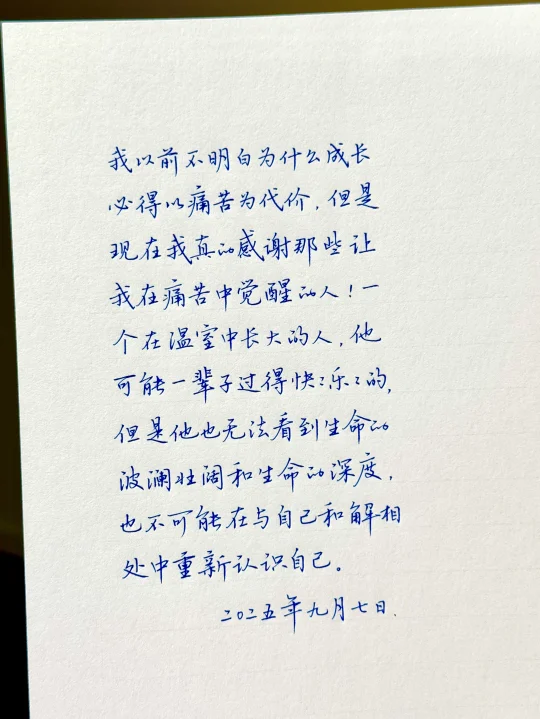 我以前不明白为什么成长
必得以痛苦为代价，但是
现在我真的感谢那些让
我在痛苦中觉醒的人！一
个在温室中长大的人，他
可能一辈子过得快〻乐〻的，
但是他也无法看到生命的
波澜壮阔和生命的深度，
也不可能在与自己和解相
处中重新认识自己。
二〇二五年九月七日.